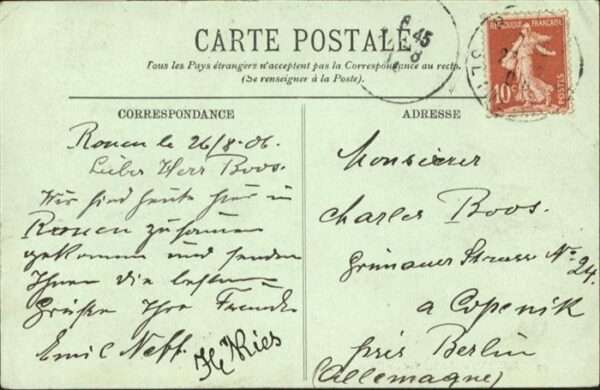 CARTE POSTALE
Tous les Pays étrangers n'acceptent pas la Correspondance au recto.
(Se renseigner à la Poste).
CORRESPONDANCE
Rouen le 26/8.06.
Lieber Herr Boos.
Wir sind heute hier in
Rouen zusammen
gekommen und senden
Ihnen die besten
Grüße Ihre Freunde
Emil Neff.
Kies
ADRESSE
Monsieur
Charles Boos.
Grünauer Strasse No 24.
a Copenik
près Berlin
(Allemagne)
REPUBLIQUE FRANÇAISE
10c
POSTES
6 45